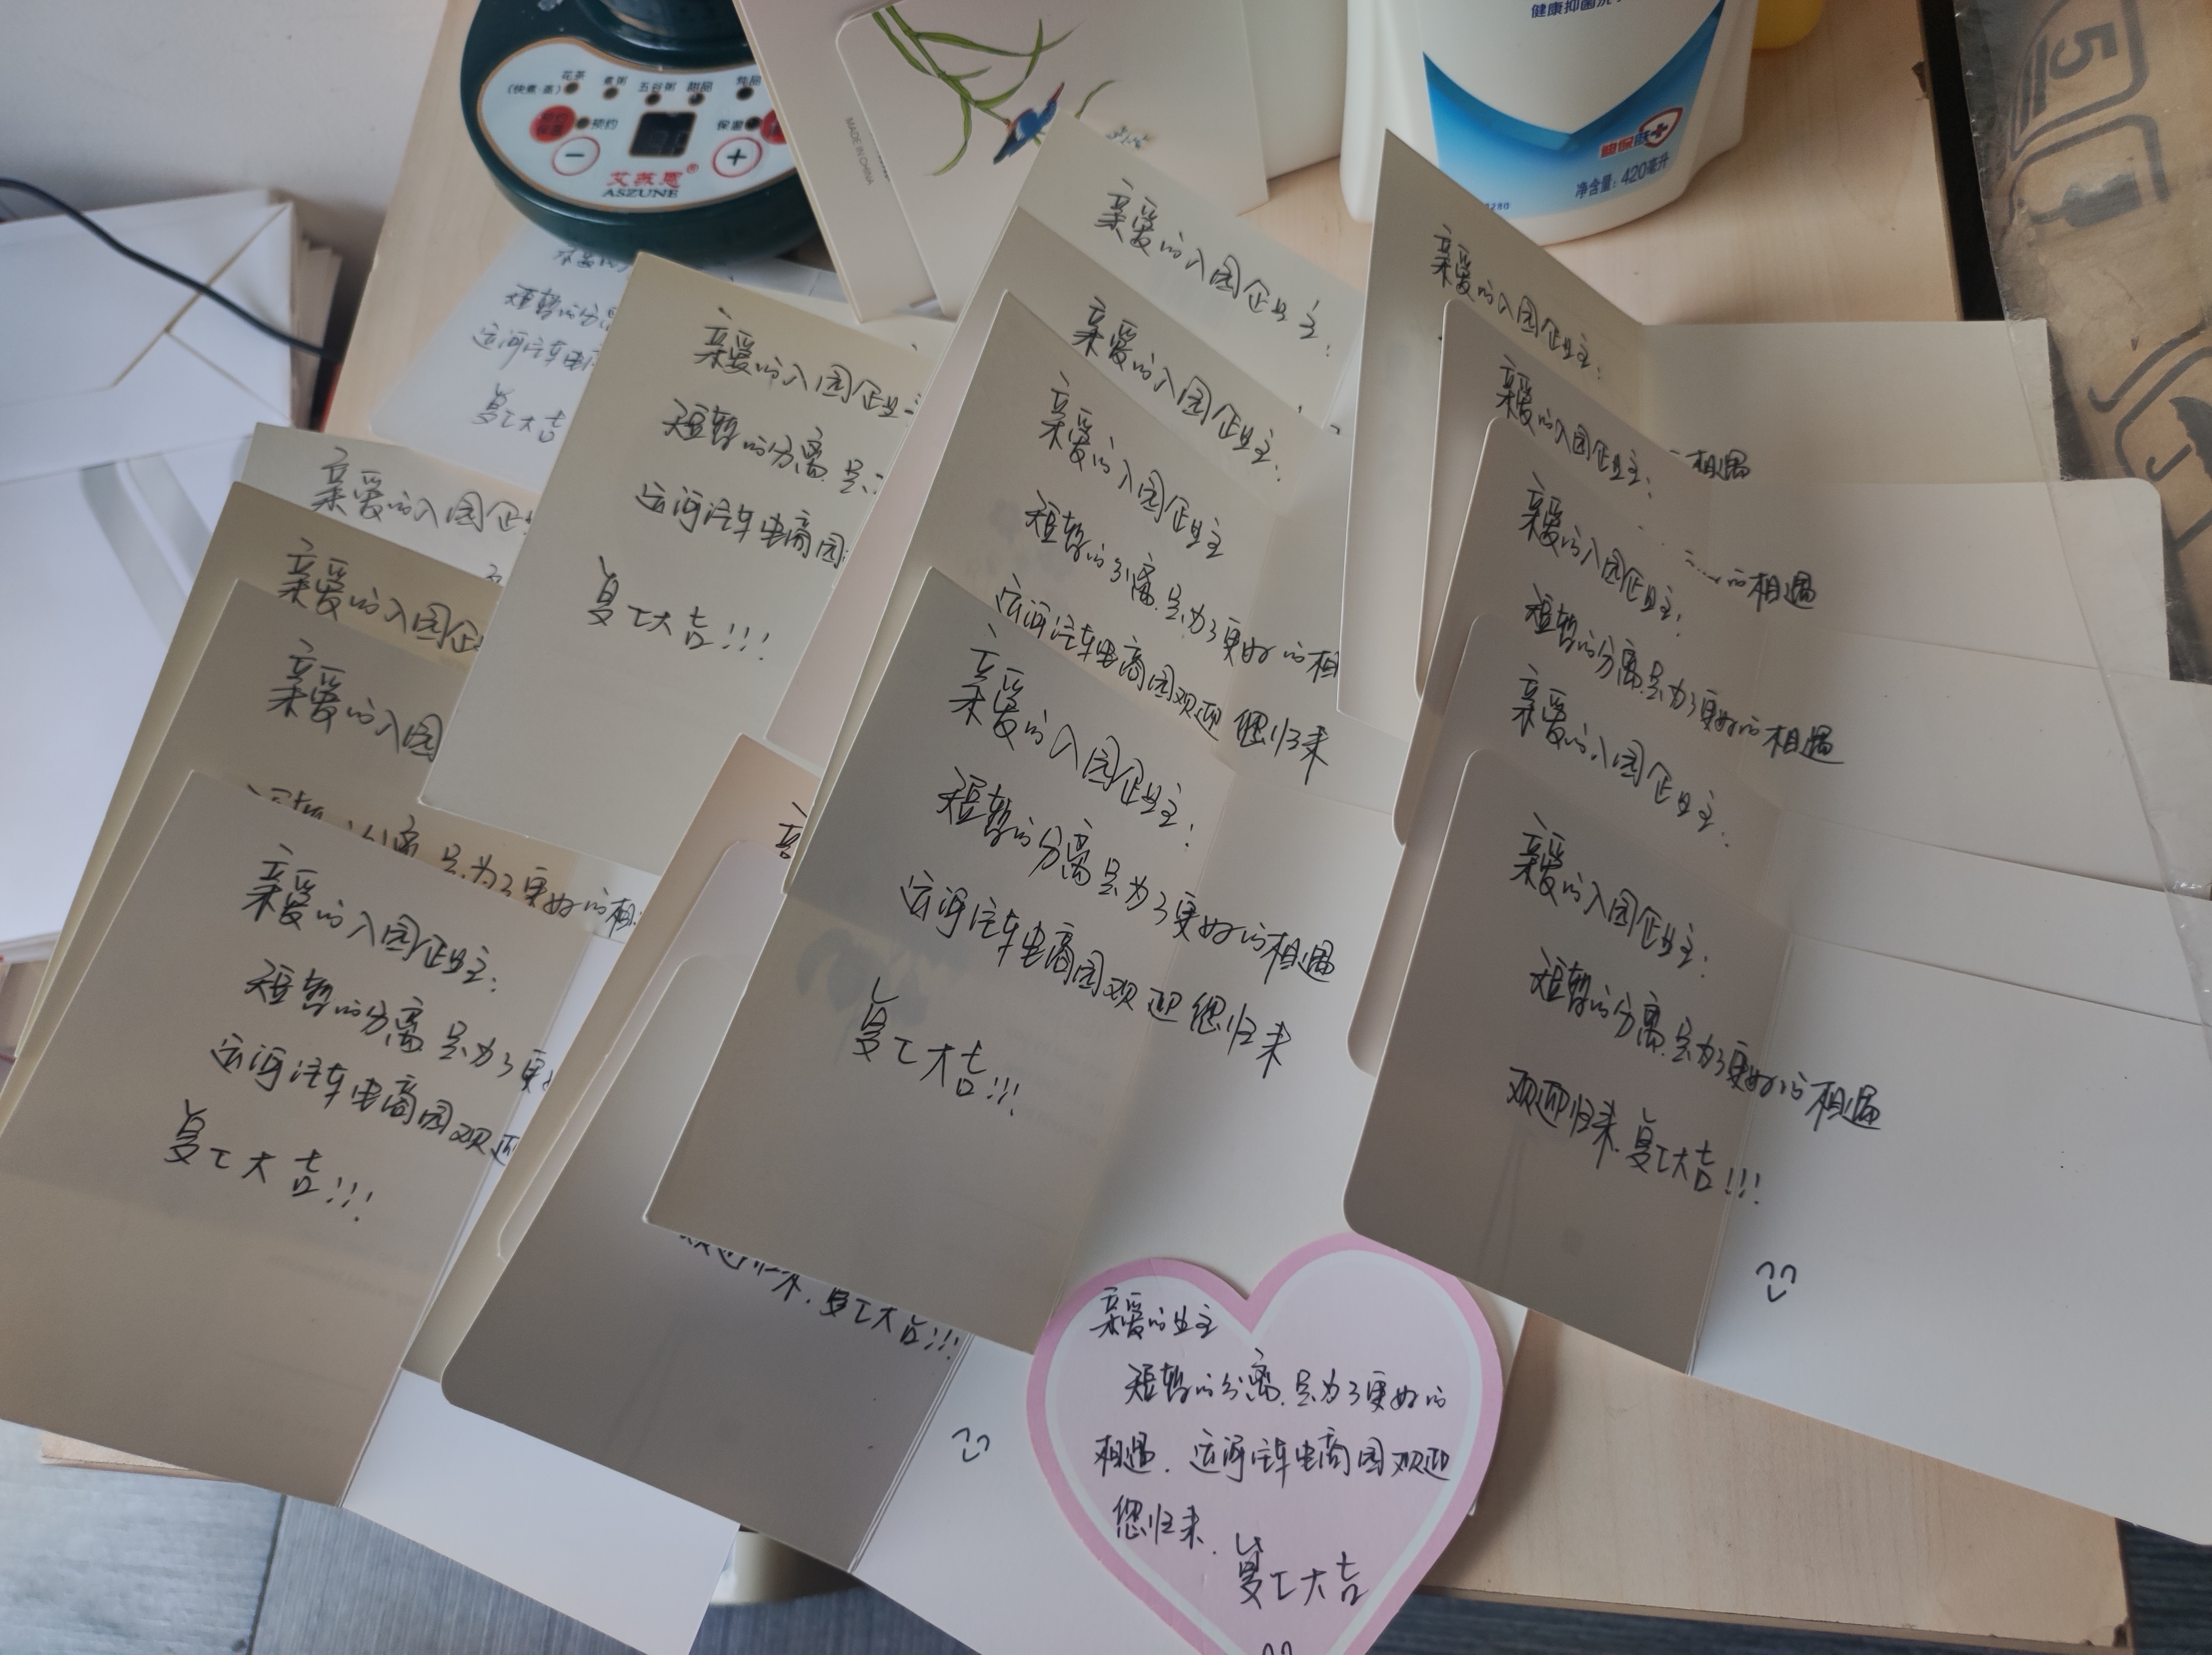 花茶
煮粥
五谷粥
甜品
炖品
(快煮·蒸)
预约
保温
艾苏恩®
ASZUNE
MADE IN CHINA
健康抑菌洗
健保肤
净含量：420毫升
5
短暂的分离
运河汽车电商
复工大吉
亲爱的入园企业
短暂的分离.是
运河汽车电商园
复工大吉!!!
亲爱的入园企
亲爱的入园企
亲爱的入园
分离.是为了更好的相
亲爱的入园企业主:
短暂的分离.是为了更
运河汽车电商园欢迎
复工大吉!!!
亲爱的入园企业主:
亲爱的入园企业主:
亲爱的入园企业主
短暂的分离.是为了更好的相
运河汽车电商园欢迎您归来
亲爱的入园企业主:
短暂的分离是为了更好的相遇
运河汽车电商园欢迎您归来
复工大吉!!!
归来.复工大吉!!!
亲爱的入园企业主:
相遇
亲爱的入园企业主:
的相遇
亲爱的入园企业主:
短暂的分离.是为了更好的相遇
亲爱的入园企业主:
亲爱的入园企业主:
短暂的分离.是为了更好的相遇
欢迎归来.复工大吉!!!
亲爱的业主
短暂的分离.是为了更好的
相遇.运河汽车电商园欢迎
您归来.
复工大吉